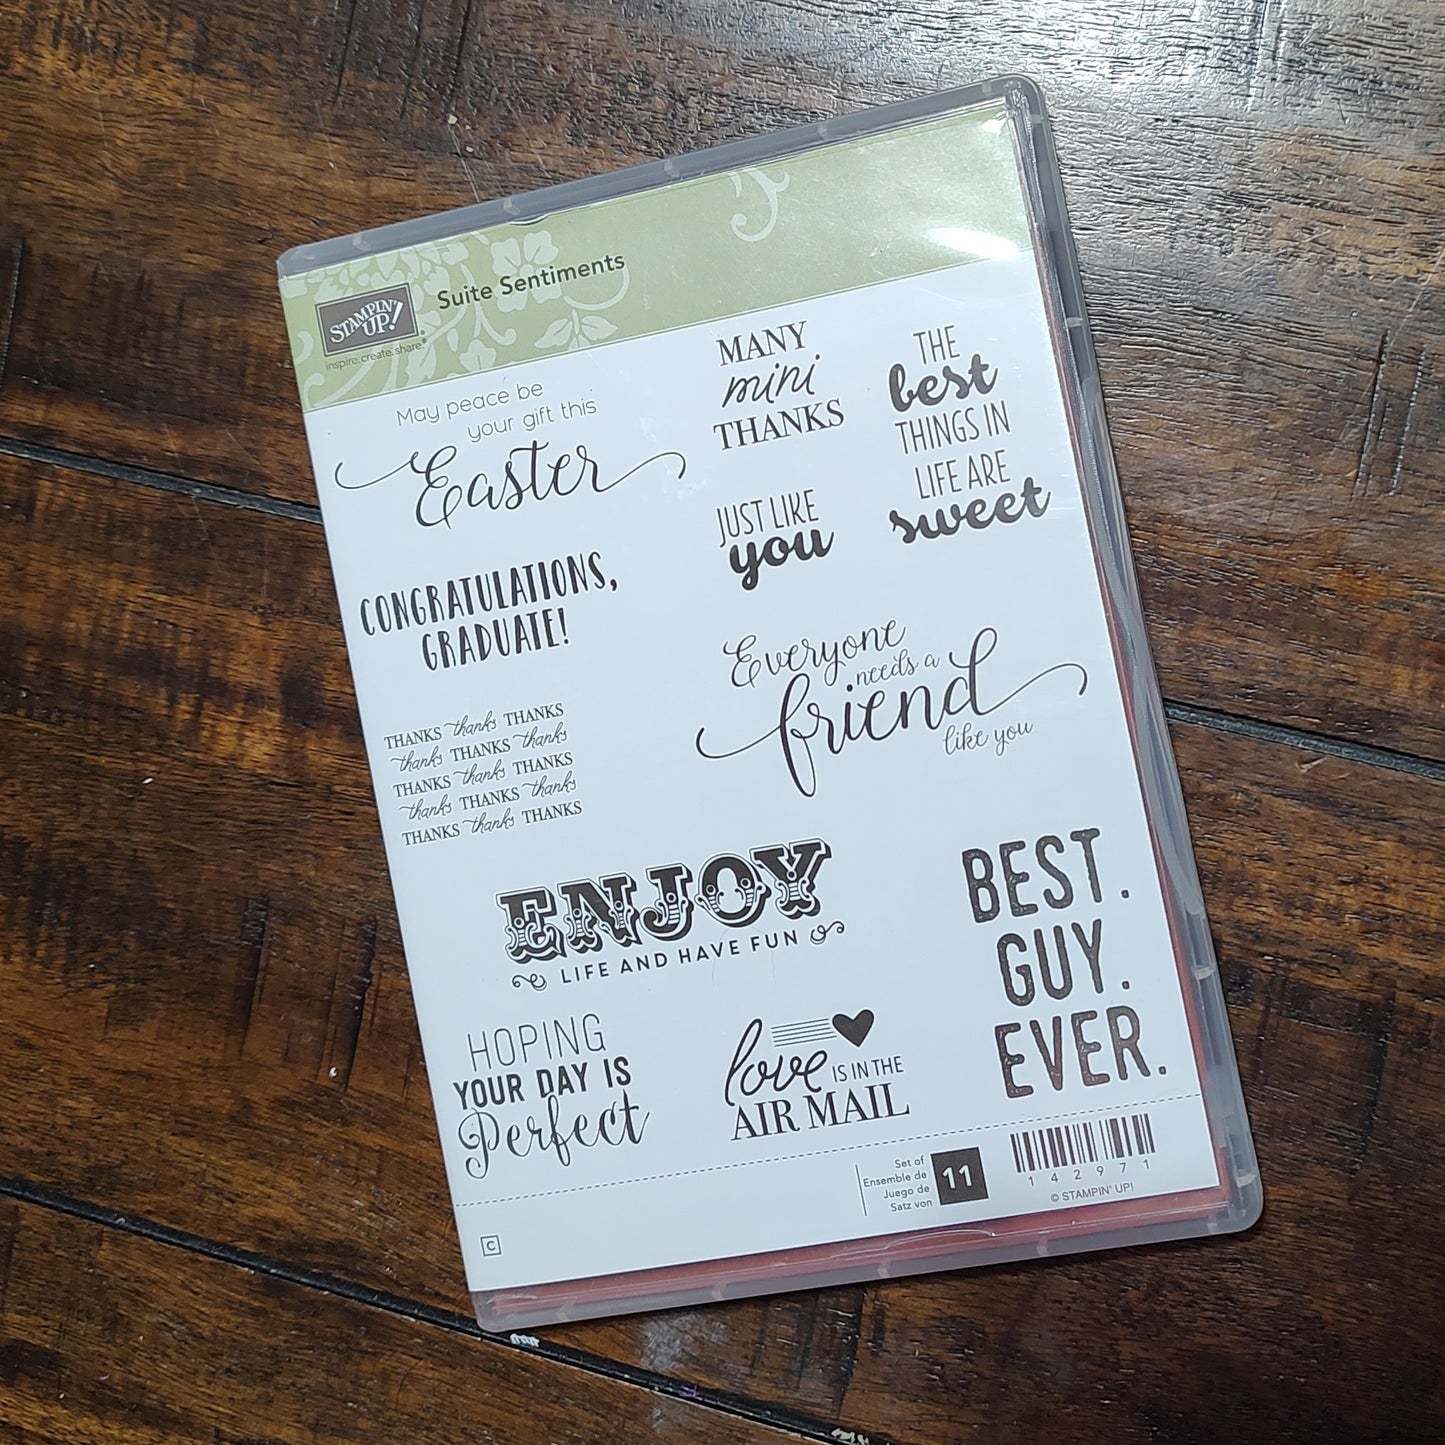 STAMPIN' UP!
inspire. create. share.®
Suite Sentiments
May peace be
your gift this
Easter
MANY
mini
THANKS
THE
best
THINGS IN
LIFE ARE
sweet
JUST LIKE
you
CONGRATULATIONS,
GRADUATE!
Everyone
needs a
friend
like you
THANKS thanks THANKS
thanks THANKS thanks
THANKS thanks THANKS
thanks THANKS thanks
THANKS thanks THANKS
ENJOY
LIFE AND HAVE FUN
BEST.
GUY.
EVER.
HOPING
YOUR DAY IS
Perfect
love IS IN THE
AIR MAIL
Set of
Ensemble de
Juego de
Satz von
11
142971
© STAMPIN' UP!
C